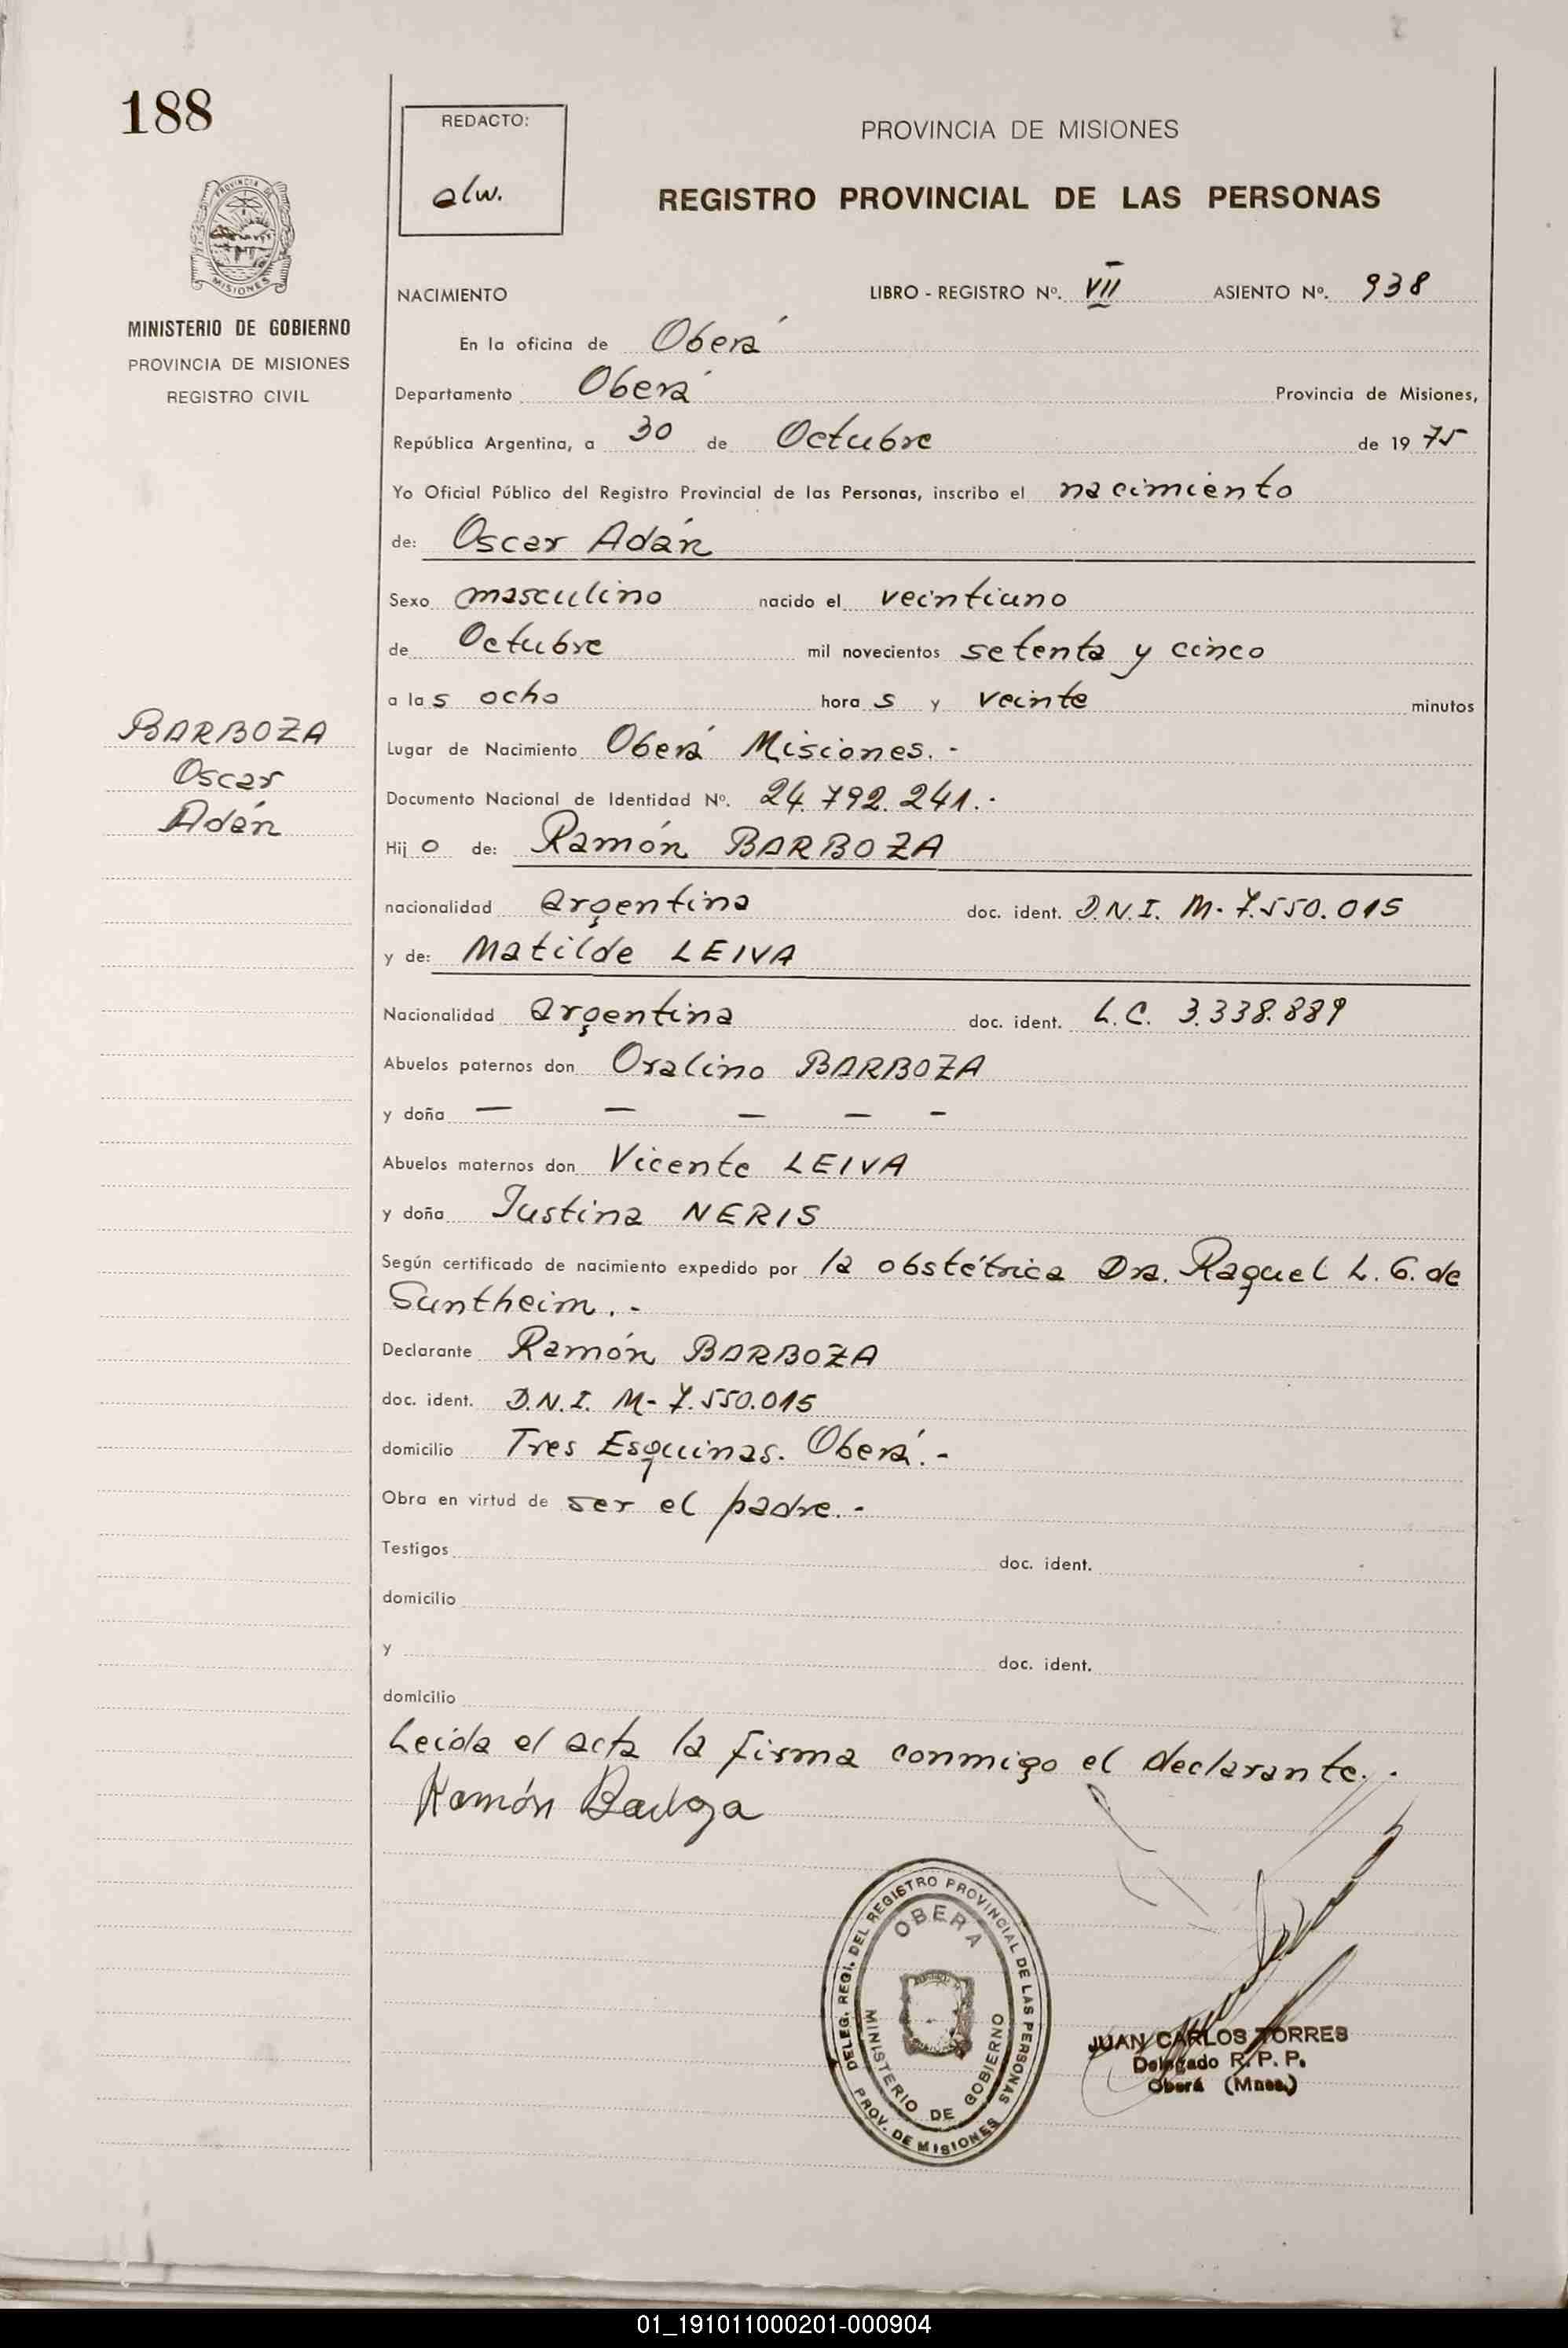 188
REDACTO:
alw.
PROVINCIA DE MISIONES
REGISTRO PROVINCIAL DE LAS PERSONAS
PROVINCIA DE
MISIONES
MINISTERIO DE GOBIERNO
PROVINCIA DE MISIONES
REGISTRO CIVIL
NACIMIENTO LIBRO - REGISTRO Nº. VII ASIENTO Nº. 938
En la oficina de Oberá
Departamento Oberá Provincia de Misiones,
República Argentina, a 30 de Octubre de 19 75
Yo Oficial Público del Registro Provincial de las Personas, inscribo el nacimiento
de: Oscar Adán
Sexo masculino nacido el veintiuno
de Octubre mil novecientos setenta y cinco
a las ocho horas y veinte minutos
BARBOZA
Oscar
Adán
Lugar de Nacimiento Oberá Misiones.-
Documento Nacional de Identidad Nº. 24.792.241.-
Hijo de: Ramón BARBOZA
nacionalidad argentina doc. ident. D.N.I. M- 7.550.015
y de: Matilde LEIVA
Nacionalidad argentina doc. ident. L.C. 3.338.889
Abuelos paternos don Oralino BARBOZA
y doña — — — — -
Abuelos maternos don Vicente LEIVA
y doña Justina NERIS
Según certificado de nacimiento expedido por la obstétrica Dra. Raquel L. G. de
Suntheim.-
Declarante Ramón BARBOZA
doc. ident. D.N.I. M- 7.550.015
domicilio Tres Esquinas. Oberá.-
Obra en virtud de ser el padre.-
Testigos doc. ident.
domicilio
y doc. ident.
domicilio
Leída el acta la firma conmigo el declarante.-
Ramón Barboza
DELEG. REGI. DEL REGISTRO PROVINCIAL DE LAS PERSONAS
OBERA
MINISTERIO DE GOBIERNO
PROV. DE MISIONES
JUAN CARLOS TORRES
Delegado R. P. P.
Oberá (Mnes.)
01_191011000201-000904